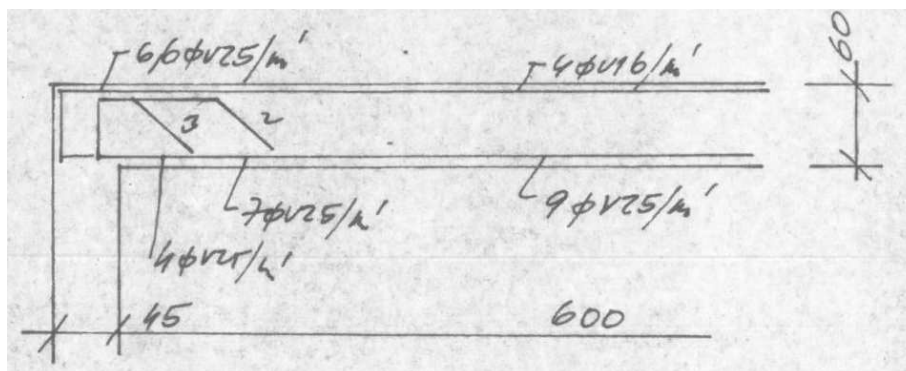 6,6ΦV25/m'
4ΦV16/m'
60
3
2
7ΦV25/m'
9ΦV25/m'
4ΦV25/m'
45
600